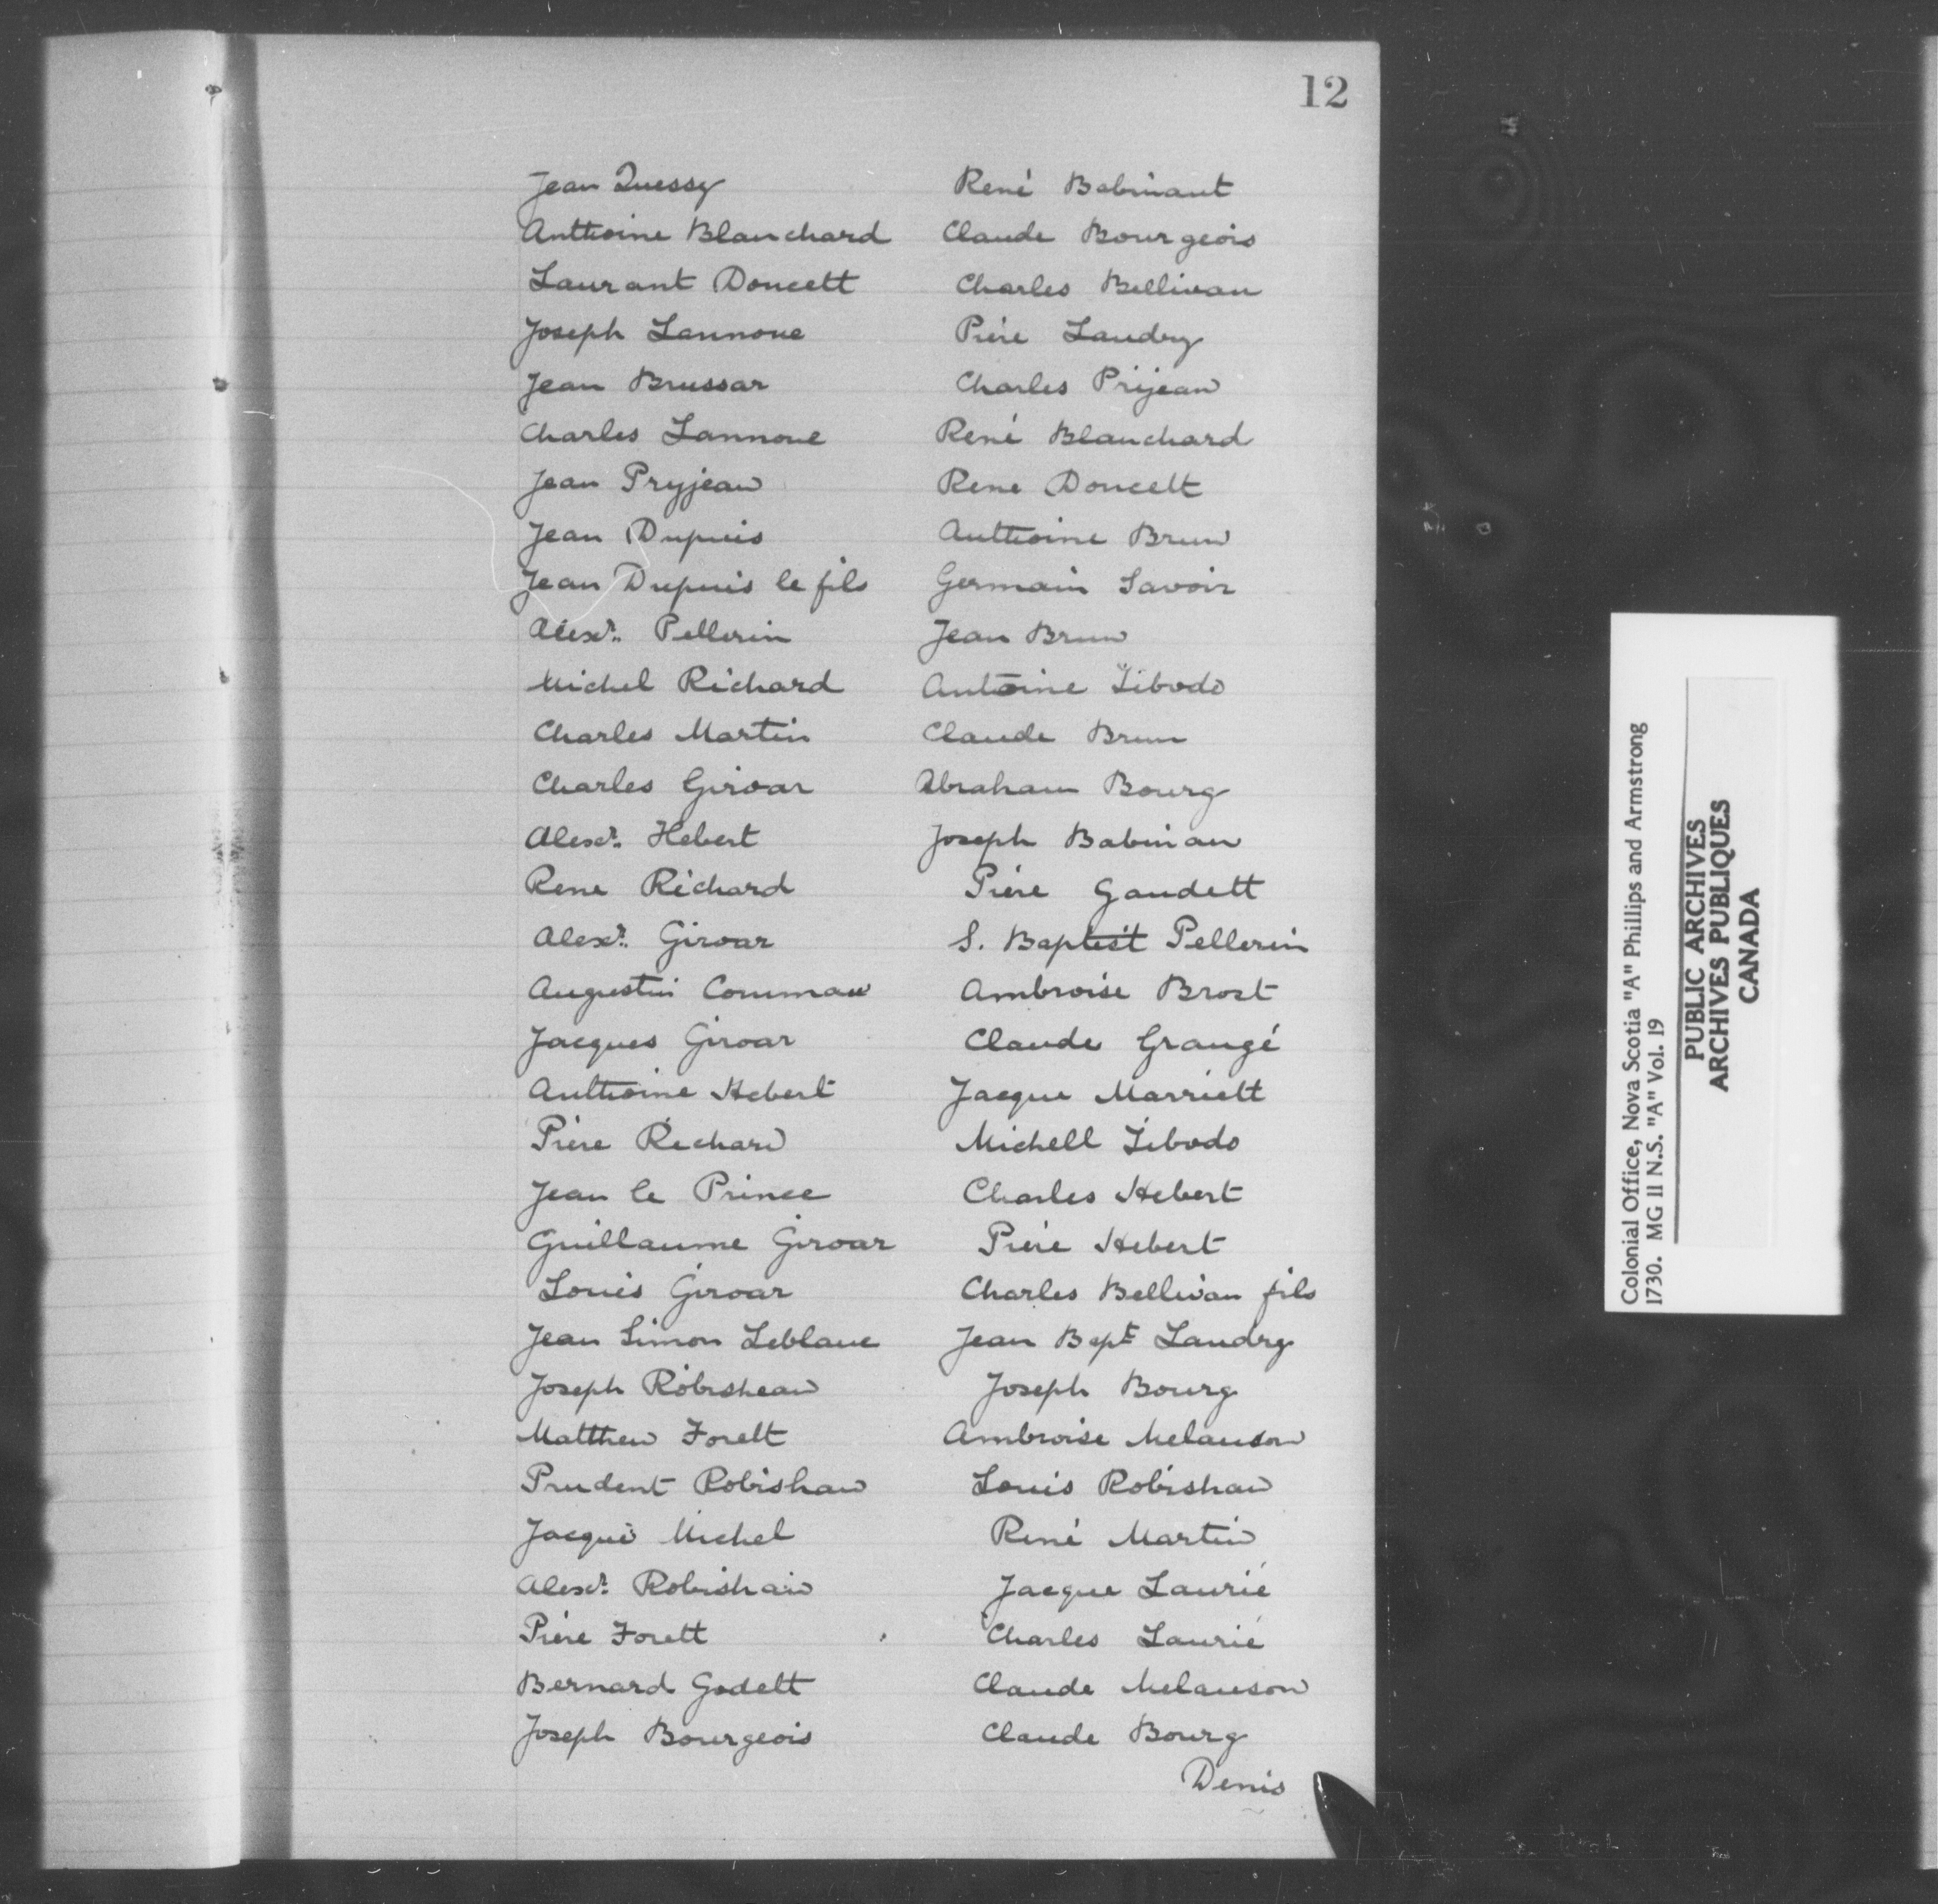 12
Jean Quessy
Anthoine Blanchard
Laurant Doucett
Joseph Lannoue
Jean Brussar
Charles Lannoue
Jean Pryjean
Jean Dupuis
Jean Dupuis le fils
Alexr. Pellerin
Michel Richard
Charles Martin
Charles Giroar
Alexr. Hebert
Rene Richard
Alexr. Giroar
Augustin Commau
Jacques Giroar
Anthoine Hebert
Piere Richard
Jean le Prince
Guillaume Giroar
Louis Giroar
Jean Simon Leblanc
Joseph Robisheau
Matthew Forett
Prudent Robishau
Jacque Michel
Alexr. Robishau
Piere Forett
Bernard Godett
Joseph Bourgeois
René Babinaut
Claude Bourgeois
Charles Bellivau
Piere Landry
Charles Prijean
René Blanchard
Rene Doucett
Anthoine Brun
Germain Savoir
Jean Brun
Antoine Tibodo
Claude Brun
Abraham Bourg
Joseph Babinau
Piere Gaudett
S. Baptist Pellerin
Ambroise Brost
Claude Grangé
Jacque Marriett
Michell Tibodo
Charles Hebert
Piere Hebert
Charles Bellivau fils
Jean Bapt Landry
Joseph Bourg
Ambroise Melanson
Louis Robishau
René Martin
Jacque Laurié
Charles Laurié
Claude Melanson
Claude Bourg
Denis
Colonial Office, Nova Scotia "A" Phillips and Armstrong
1730. MG 11 N.S. "A" Vol. 19
PUBLIC ARCHIVES
ARCHIVES PUBLIQUES
CANADA